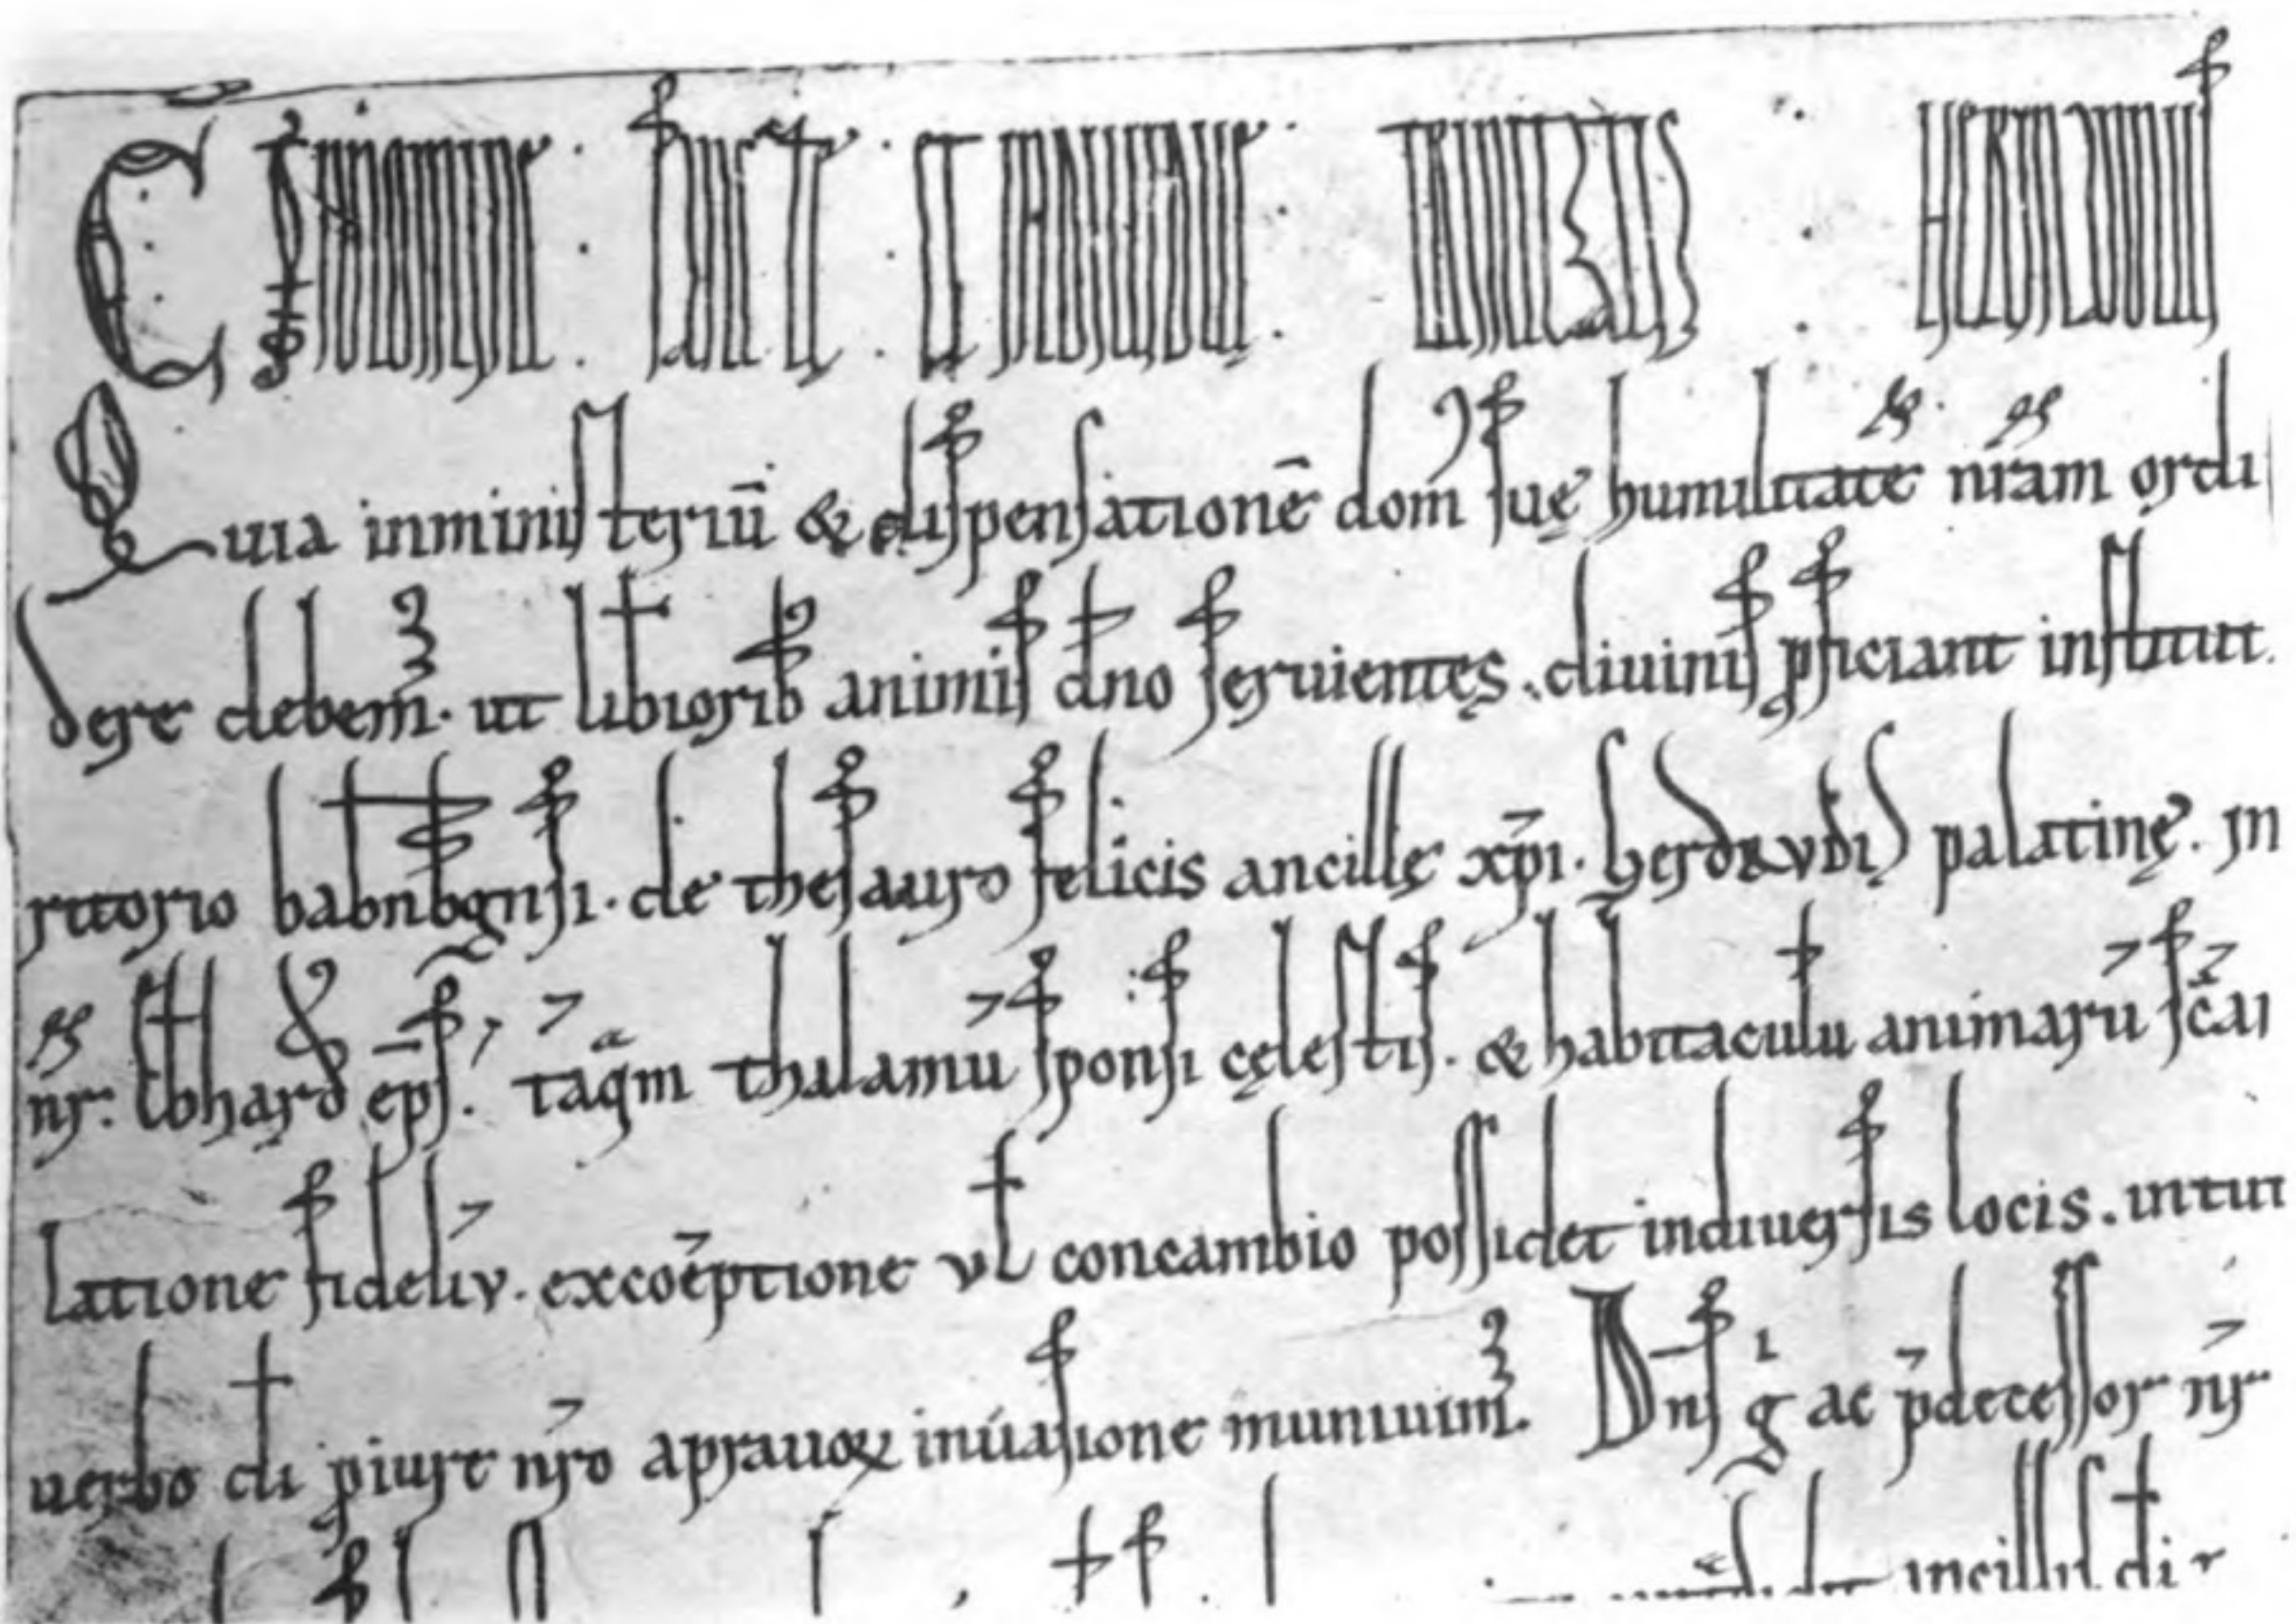 C IN NOMINE · SANCTĘ · ET INDIVIDUĘ · TRINITATIS : HERIMANNUS
Quia inministeriū & dispensationē dom̄ suę humilitatē nr̄am ordi
dere debem̄. ut libioribꝰ animis dn̄o seruientes. diuinis ꝓficiant institut.
ritorio babnbgnsi. de thesauro felicis ancillę xp̄i. Gerdrudis palatinę. in
nr̄. Ebhard ep̄s. tāqᵃm thalamū sponsi cęlestis. & habitaculū animarū sc̄aı
latione fideliū. excōeptione vł concambio possidet indiuersis locis. intui
uerbo di ꝓ iure nr̄o aprauoꝝ inuasione muniuim̄. Dn̄s gⁱ ac p̄decessor nr̄
incillis di